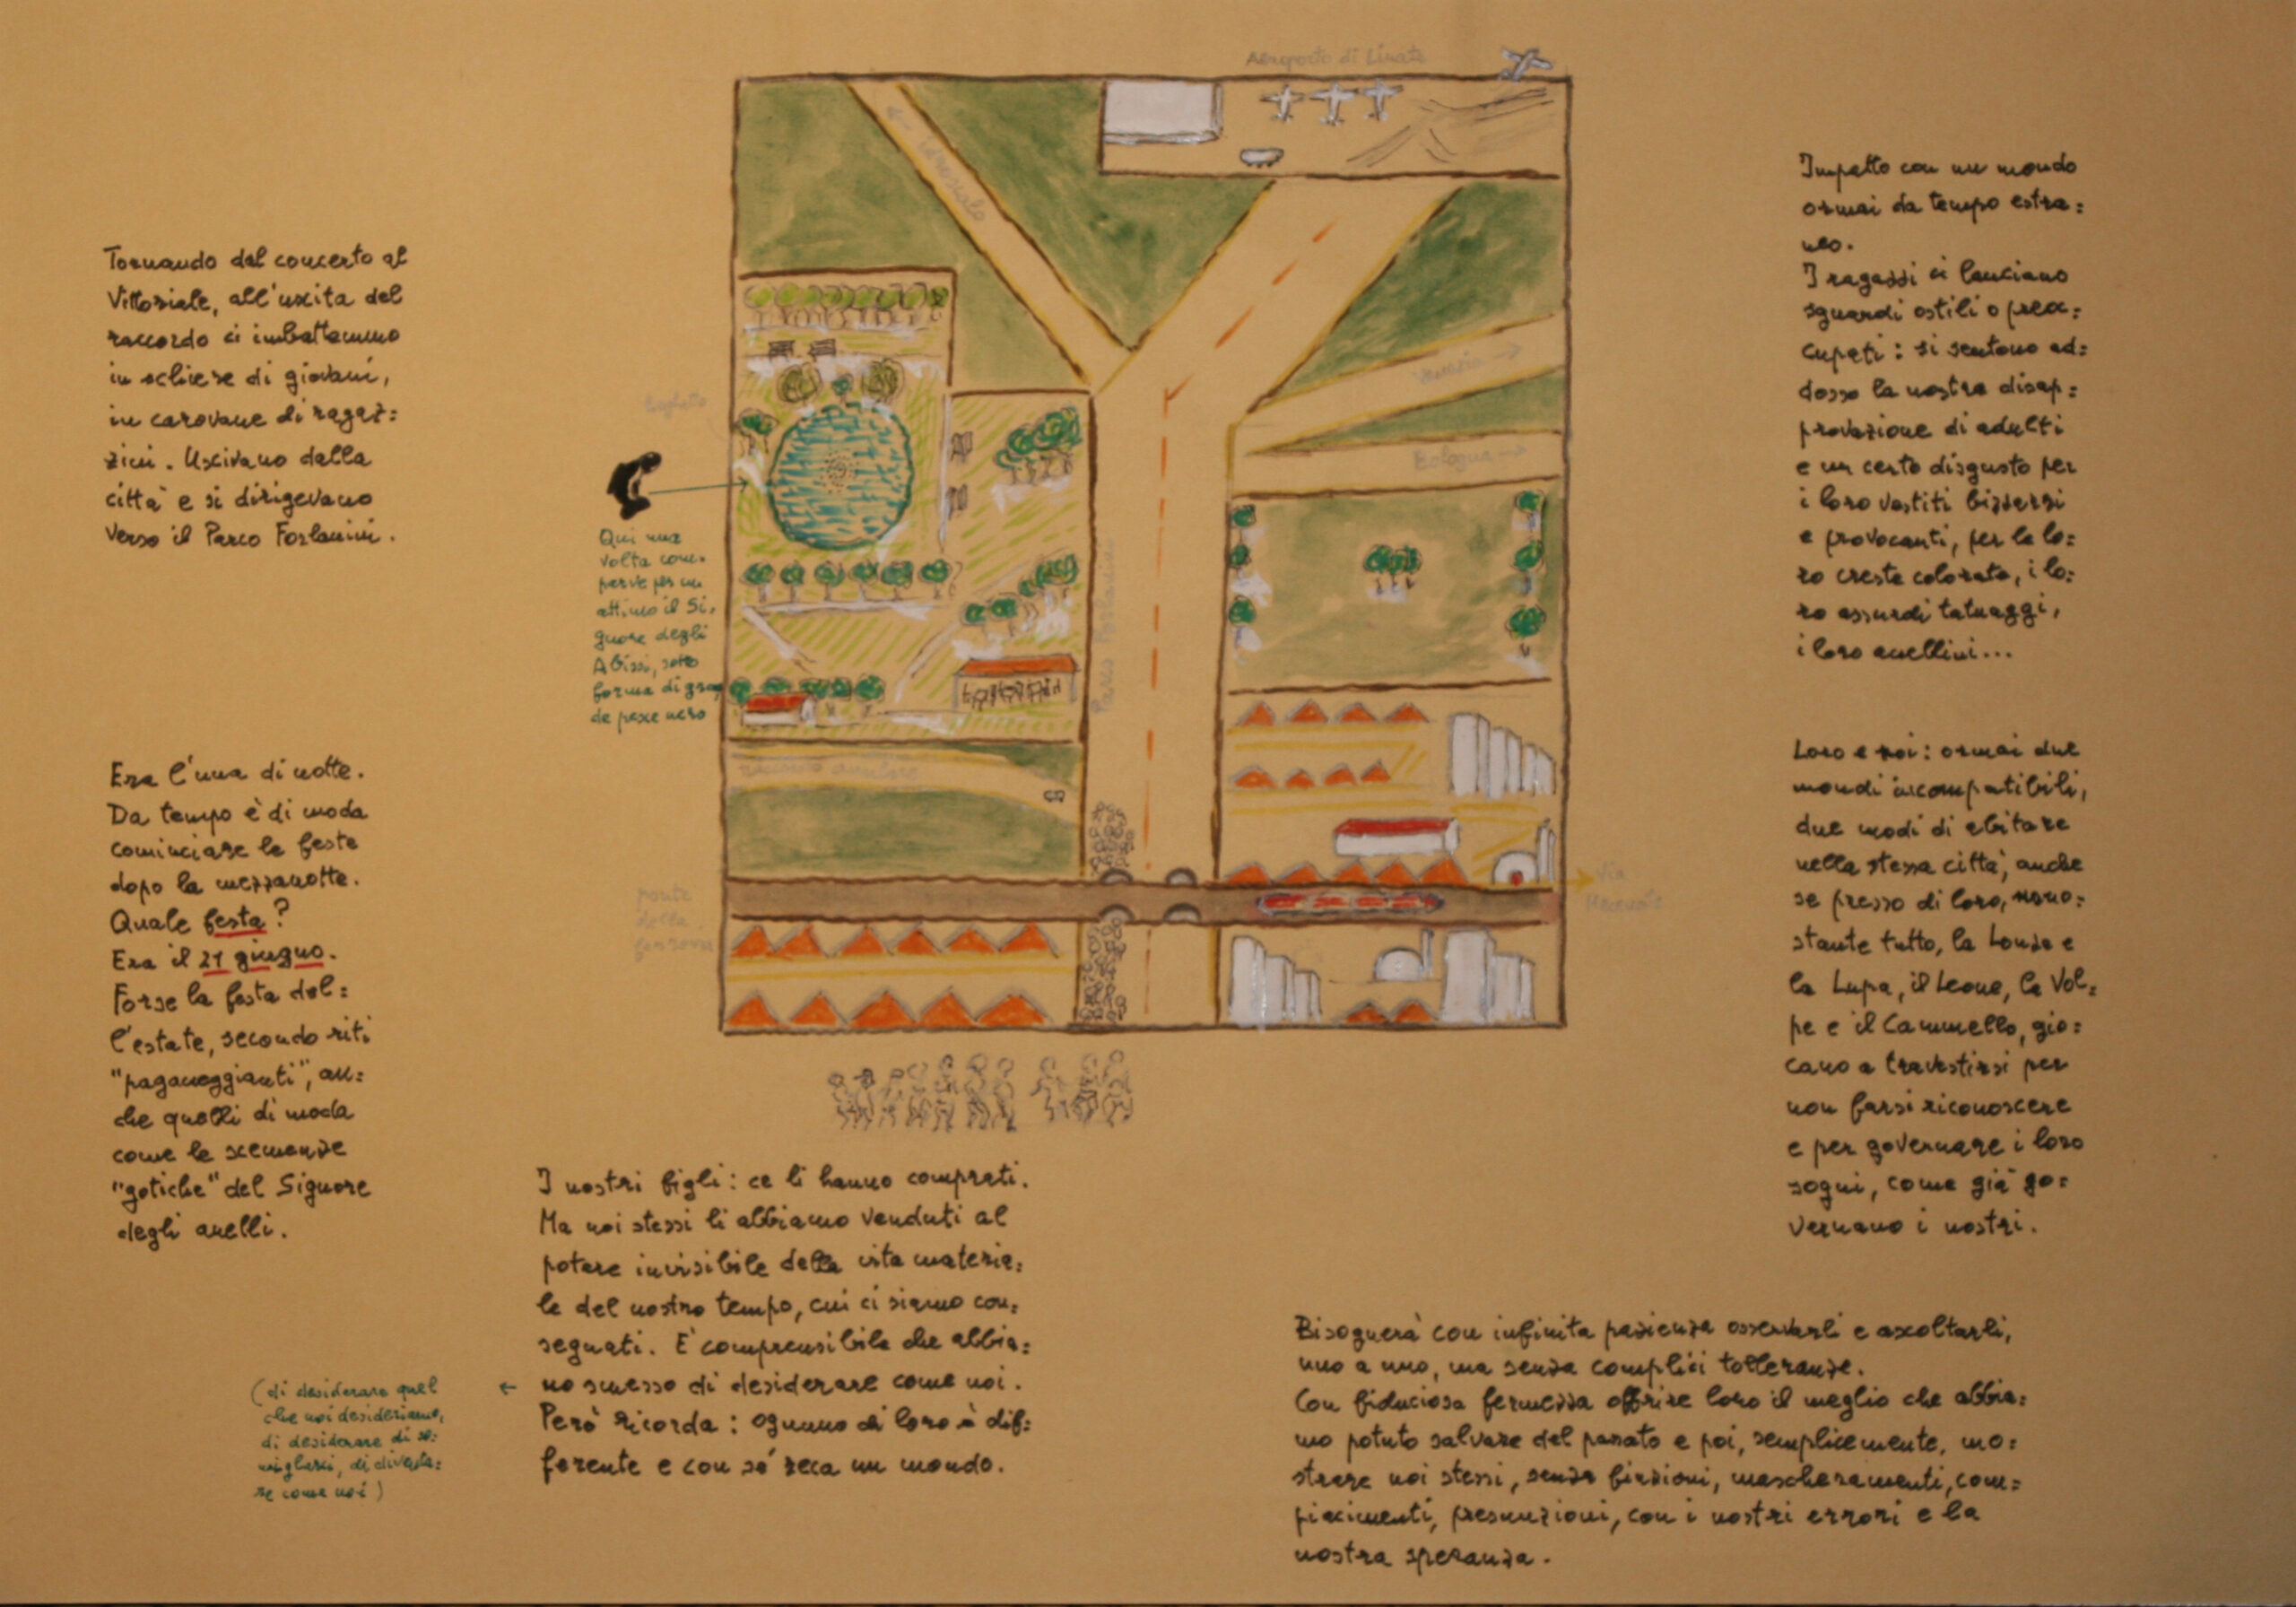 Aeroporto di Linate
← idroscalo
Venezia →
Bologna →
laghetto
Parco Forlanini
raccordo anulare
ponte
della
ferrovia
Via
Mecenate
Tornando dal concerto al
Vittoriale, all'uscita del
raccordo ci imbattemmo
in schiere di giovani,
in carovane di ragaz=
zini. Uscivano dalla
città e si dirigevano
verso il Parco Forlanini.
Era l'una di notte.
Da tempo è di moda
cominciare le feste
dopo la mezzanotte.
Quale festa?
Era il 21 giugno.
Forse la festa del=
l'estate, secondo riti
"paganeggianti", an=
che quelli di moda
come le scemenze
"gotiche" del Signore
degli anelli.
Qui una
volta com-
parve per un
attimo il Si-
gnore degli
Abissi, sotto
forma di gran=
de pesce nero
I nostri figli: ce li hanno comprati.
Ma noi stessi li abbiamo venduti al
potere invisibile della vita materia=
le del nostro tempo, cui ci siamo con=
segnati. E' comprensibile che abbia=
no smesso di desiderare come noi.
Però ricorda: ognuno di loro è dif=
ferente e con sé reca un mondo.
(di desiderare quel ←
che noi desideriamo,
di desiderare di so=
migliarci, di diventa=
re come noi)
Impatto con un mondo
ormai da tempo estra=
neo.
I ragazzi ci lanciano
sguardi ostili o preoc=
cupati: si sentono ad=
dosso la nostra disap=
provazione di adulti
e un certo disgusto per
i loro vestiti bizzarri
e provocanti, per le lo=
ro creste colorate, i lo=
ro assurdi tatuaggi,
i loro anellini...
Loro e noi: ormai due
mondi incompatibili,
due modi di abitare
nella stessa città, anche
se presso di loro, nono=
stante tutto, la Lonza e
la Lupa, il Leone, la Vol=
pe e il Cammello, gio=
cano a travestirsi per
non farsi riconoscere
e per governare i loro
sogni, come già go=
vernano i nostri.
Bisognerà con infinita pazienza osservarli e ascoltarli,
uno a uno, ma senza complici tolleranze.
Con fiduciosa fermezza offrire loro il meglio che abbia=
mo potuto salvare del passato e poi, semplicemente, mo=
strare noi stessi, senza finzioni, mascheramenti, com=
piacimenti, presunzioni, con i nostri errori e la
nostra speranza.